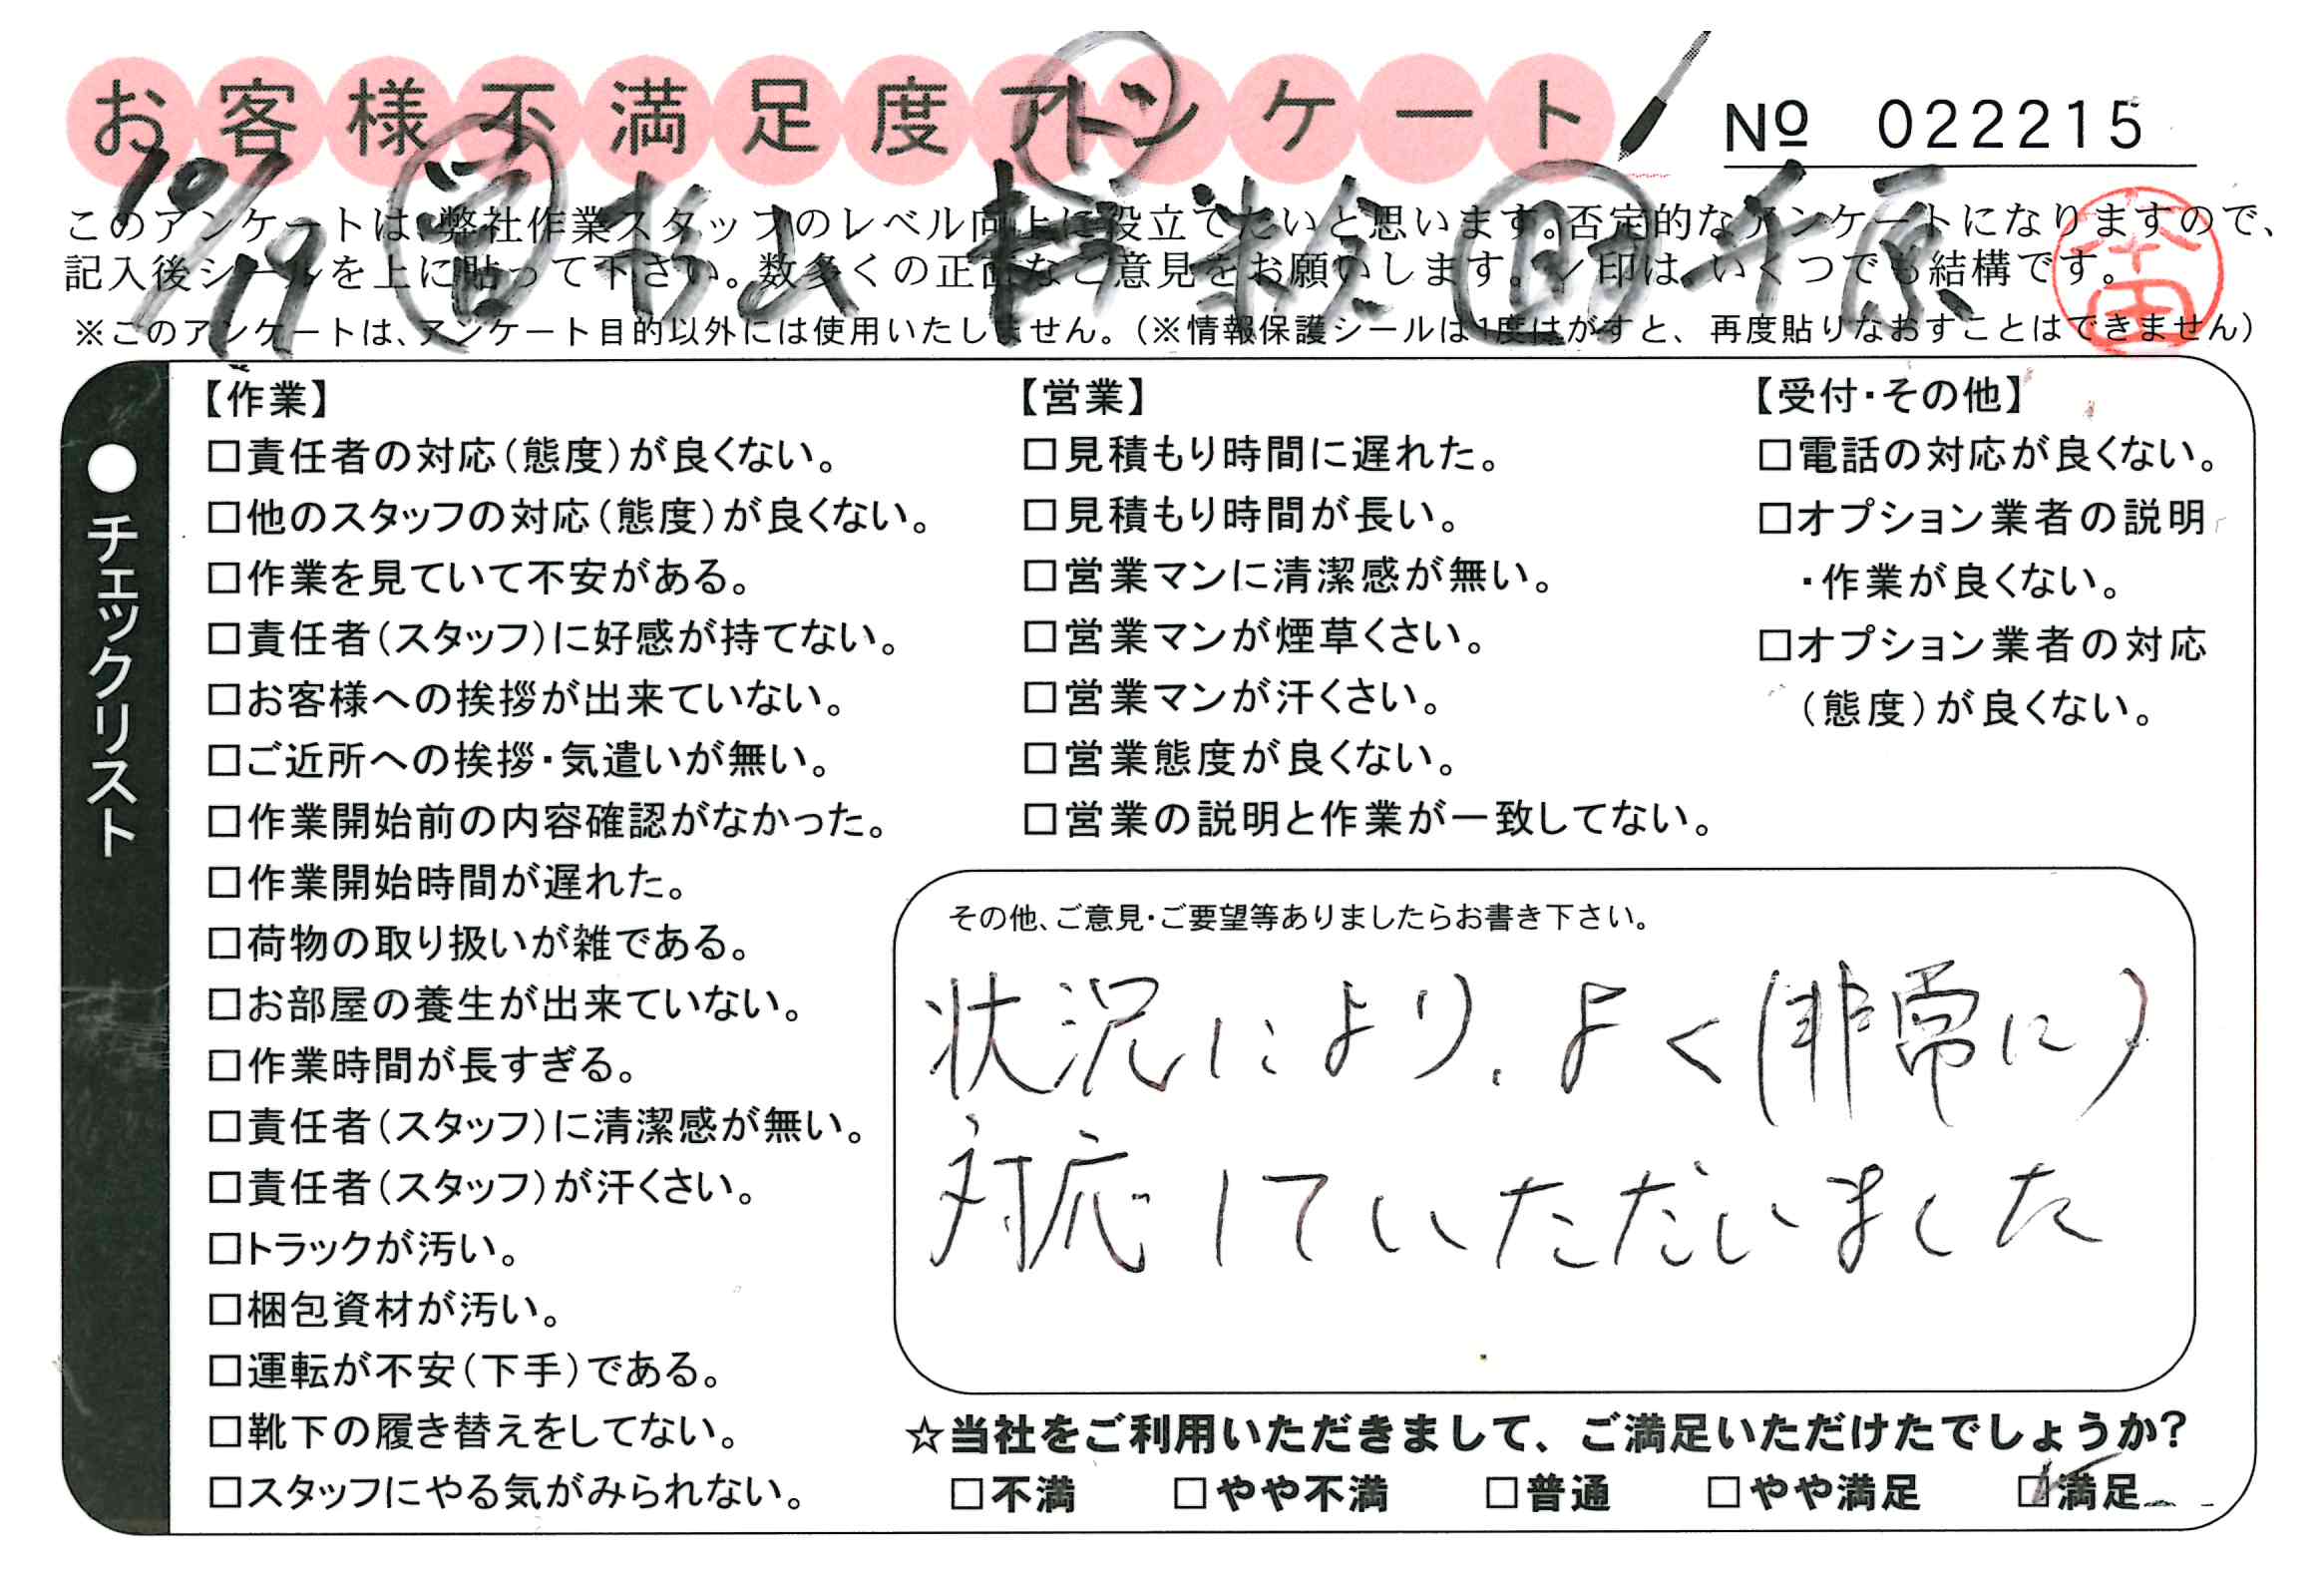 お客様不満足度アンケート
№ 022215
10/19 営 ト
このアンケートは、弊社作業スタッフのレベル向上に役立てたいと思います。否定的なアンケートになりますので、
記入後シールを上に貼って下さい。数多くの正直なご意見をお願いします。✓印は、いくつでも結構です。
※このアンケートは、アンケート目的以外には使用いたしません。(※情報保護シールは1度はがすと、再度貼りなおすことはできません)
●チェックリスト
【作業】
□責任者の対応(態度)が良くない。
□他のスタッフの対応(態度)が良くない。
□作業を見ていて不安がある。
□責任者(スタッフ)に好感が持てない。
□お客様への挨拶が出来ていない。
□ご近所への挨拶・気遣いが無い。
□作業開始前の内容確認がなかった。
□作業開始時間が遅れた。
□荷物の取り扱いが雑である。
□お部屋の養生が出来ていない。
□作業時間が長すぎる。
□責任者(スタッフ)に清潔感が無い。
□責任者(スタッフ)が汗くさい。
□トラックが汚い。
□梱包資材が汚い。
□運転が不安(下手)である。
□靴下の履き替えをしてない。
□スタッフにやる気がみられない。
【営業】
□見積もり時間に遅れた。
□見積もり時間が長い。
□営業マンに清潔感が無い。
□営業マンが煙草くさい。
□営業マンが汗くさい。
□営業態度が良くない。
□営業の説明と作業が一致してない。
【受付・その他】
□電話の対応が良くない。
□オプション業者の説明
・作業が良くない。
□オプション業者の対応
(態度)が良くない。
その他、ご意見・ご要望等ありましたらお書き下さい。
状況により、よく(非常に)
対応していただいました
☆当社をご利用いただきまして、ご満足いただけたでしょうか?
□不満 □やや不満 □普通 □やや満足 ☑満足